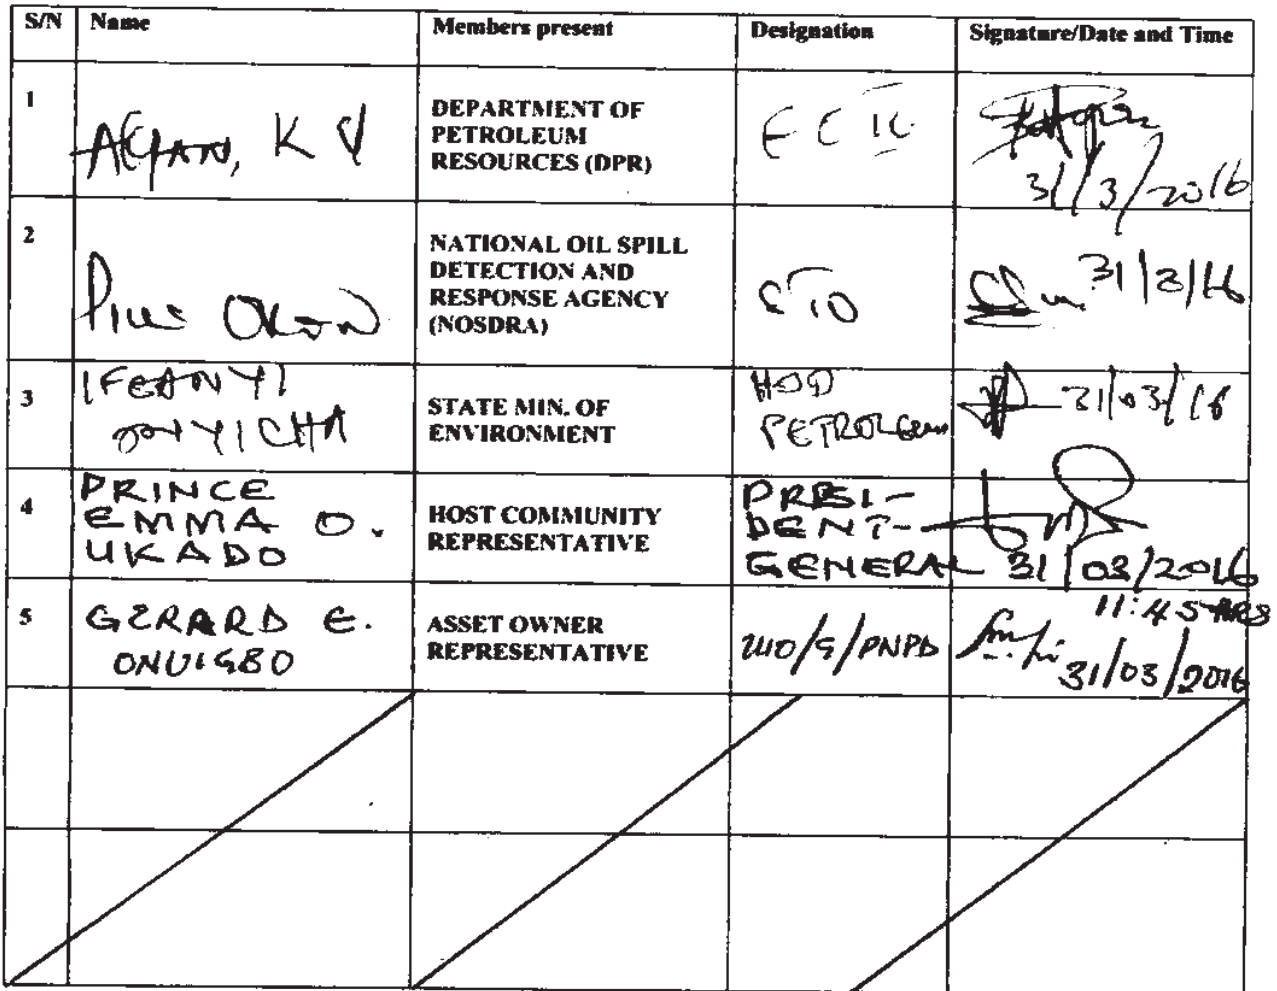 S/N Name Members present Designation Signature/Date and Time
1 K V DEPARTMENT OF PETROLEUM RESOURCES (DPR) 31/3/2016
2 Pius NATIONAL OIL SPILL DETECTION AND RESPONSE AGENCY (NOSDRA) 31/3/16
3 IFEANYI STATE MIN. OF ENVIRONMENT HOD PETROLEUM 31/03/16
4 PRINCE EMMA O. UKADO HOST COMMUNITY REPRESENTATIVE PRESI-DENT-GENERAL 31/03/2016
11:45 HRS
5 GERARD E. ONUIGBO ASSET OWNER REPRESENTATIVE 31/03/2016